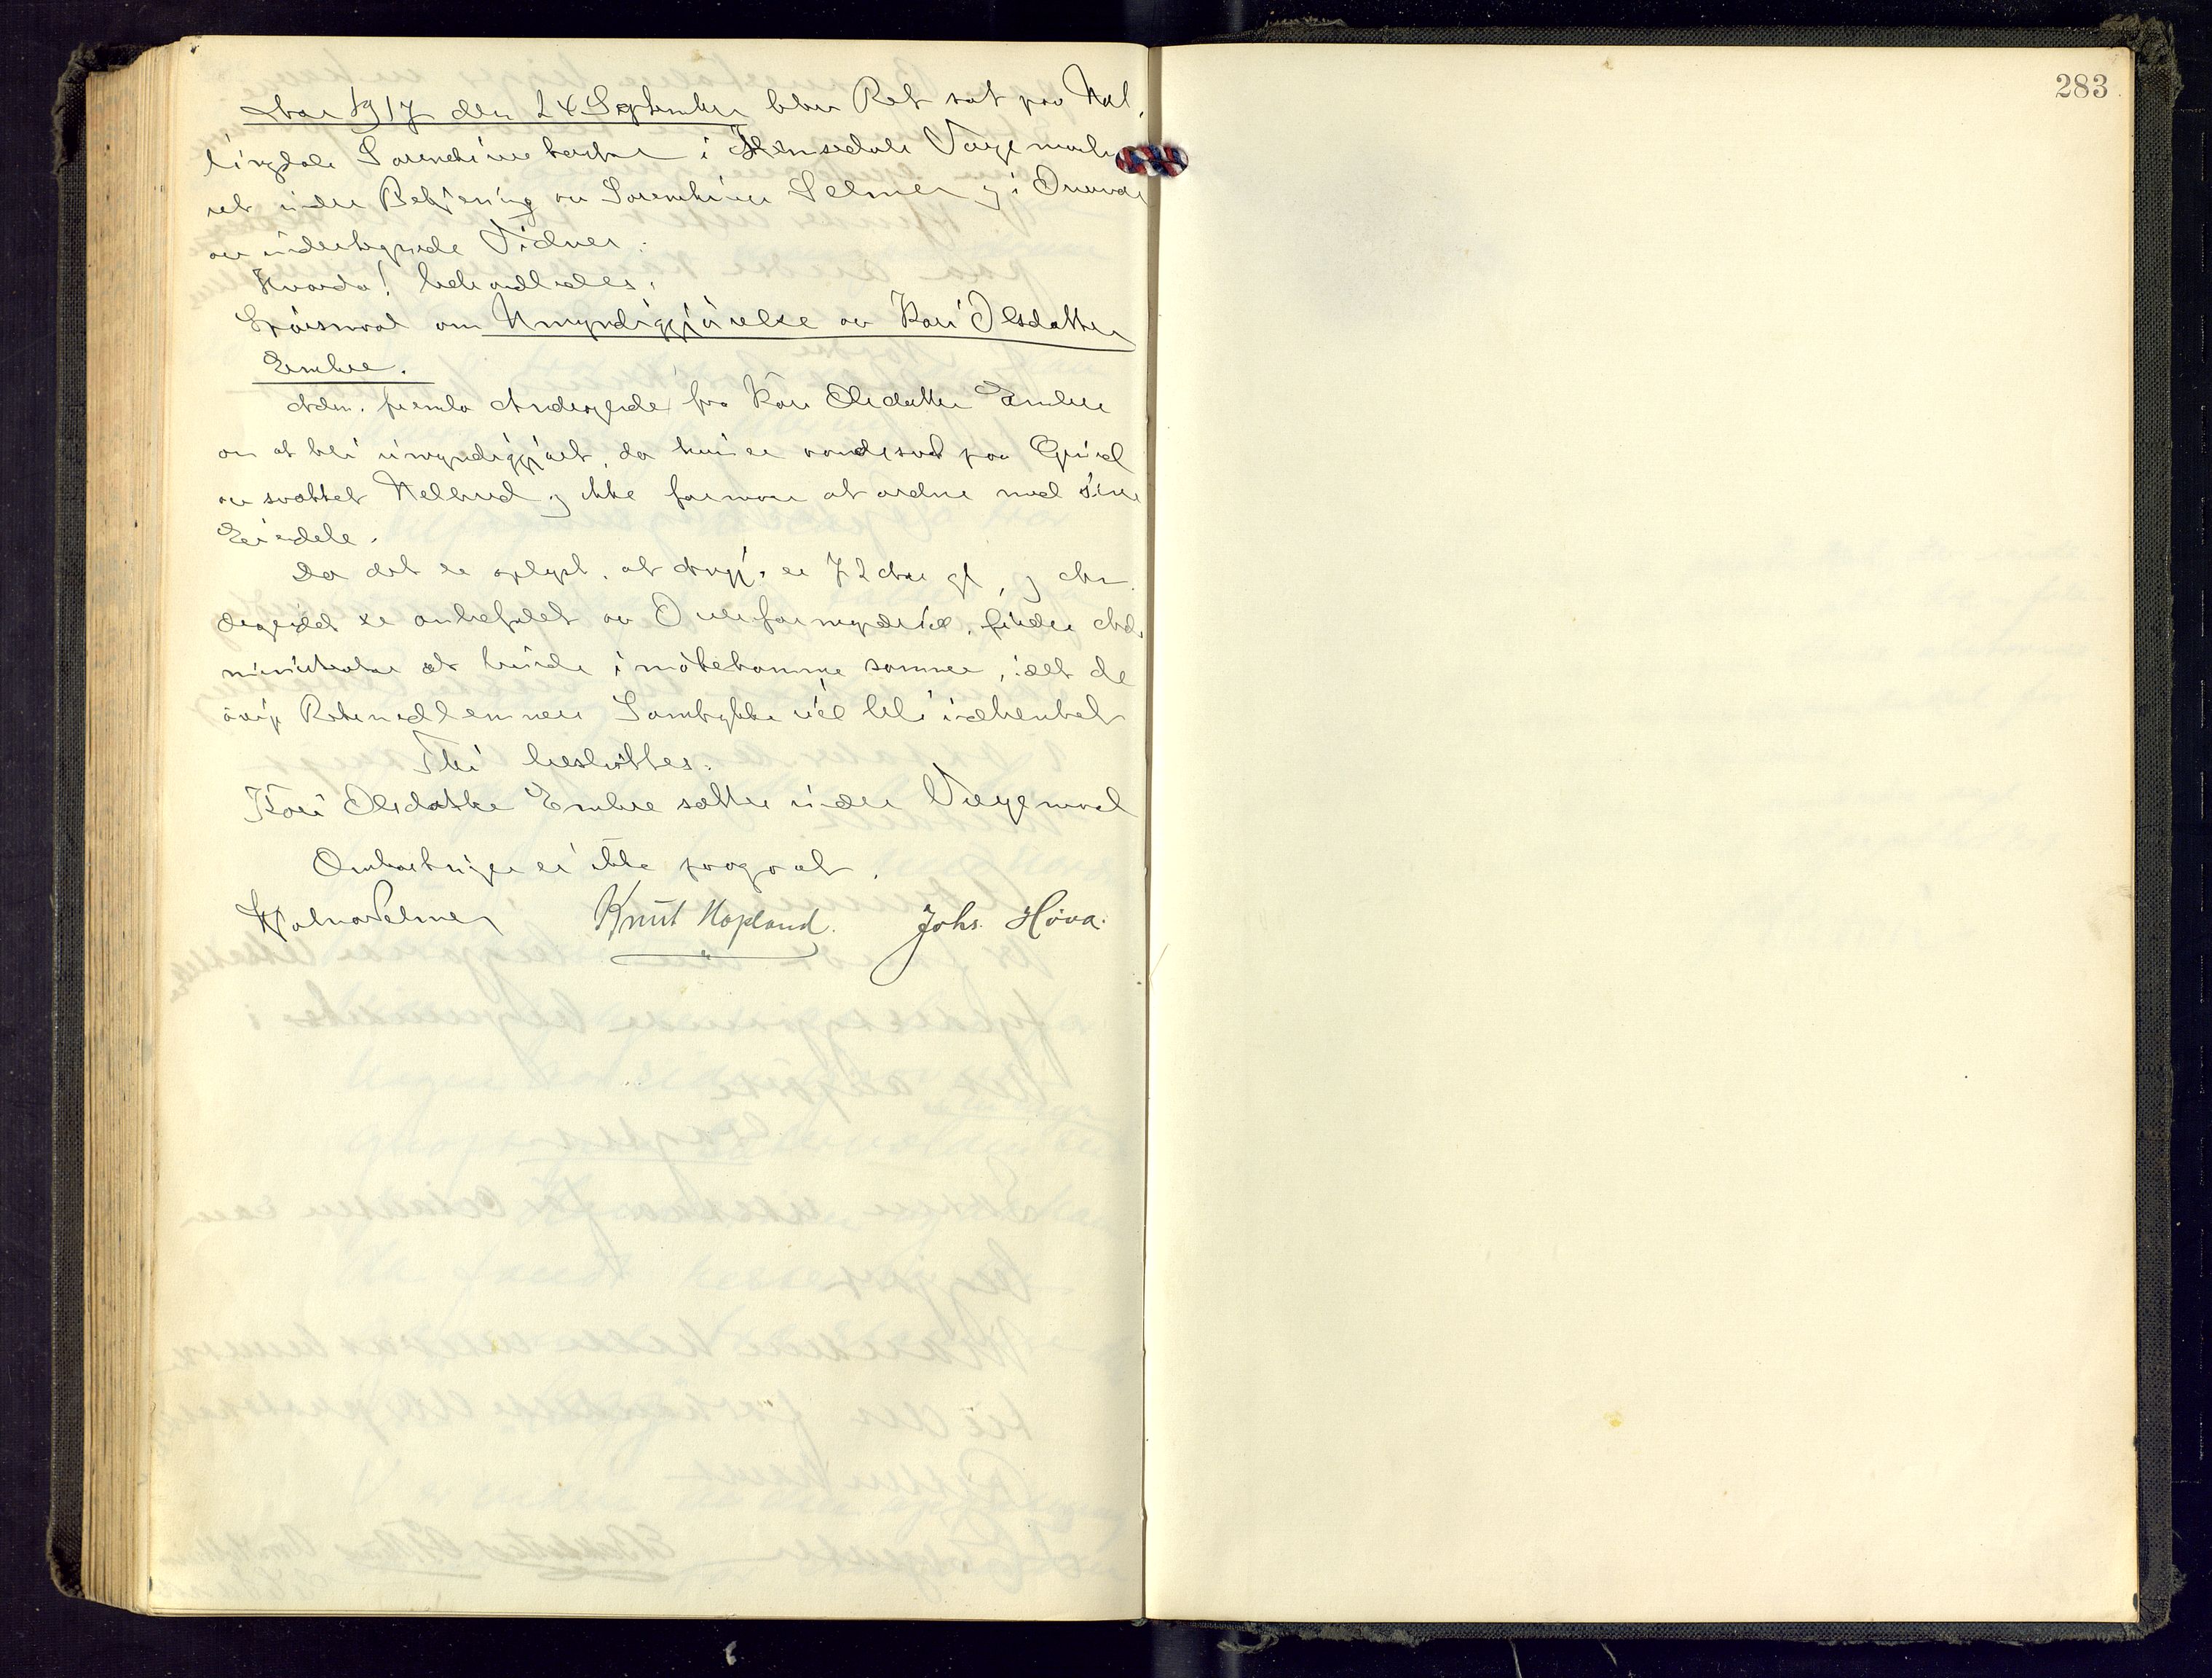 283
Aar 1917 den 24 September blev Ret sat paa Hal,
lingdals Sorenskriverkontor i Hemsedals Vergemaals
ret under Betjening av Sorenskriver Selmer og i Overvær
av undertegnede Vidner.
Hvorda! behandledes:
Spörsmaal om Umyndiggjörelse av Kari Olsdatter
Embre.
Adm. fremla Andragende fra Kari Olsdatter Embre
om at bli umyndiggjört, da hun er aandssvak paa Grund
av svækket Helbred og ikke formaar at ordne med sine
Eiendele.
Da det er oplyst, at Angj. er 72 Aar gl, og An
dragendet er anbefalet av Overformynderiet, finder Ad,
ministrator at burde imötekomme samme, idet de
övrige Retsmedlemmers Samtykke vil bli indhentet
Thi besluttes:
Kari Olsdatter Embre sættes under Vergemaal
Omkostninger er ikke paagaat.
Selmer Knut Hagland. Johs. Höva.